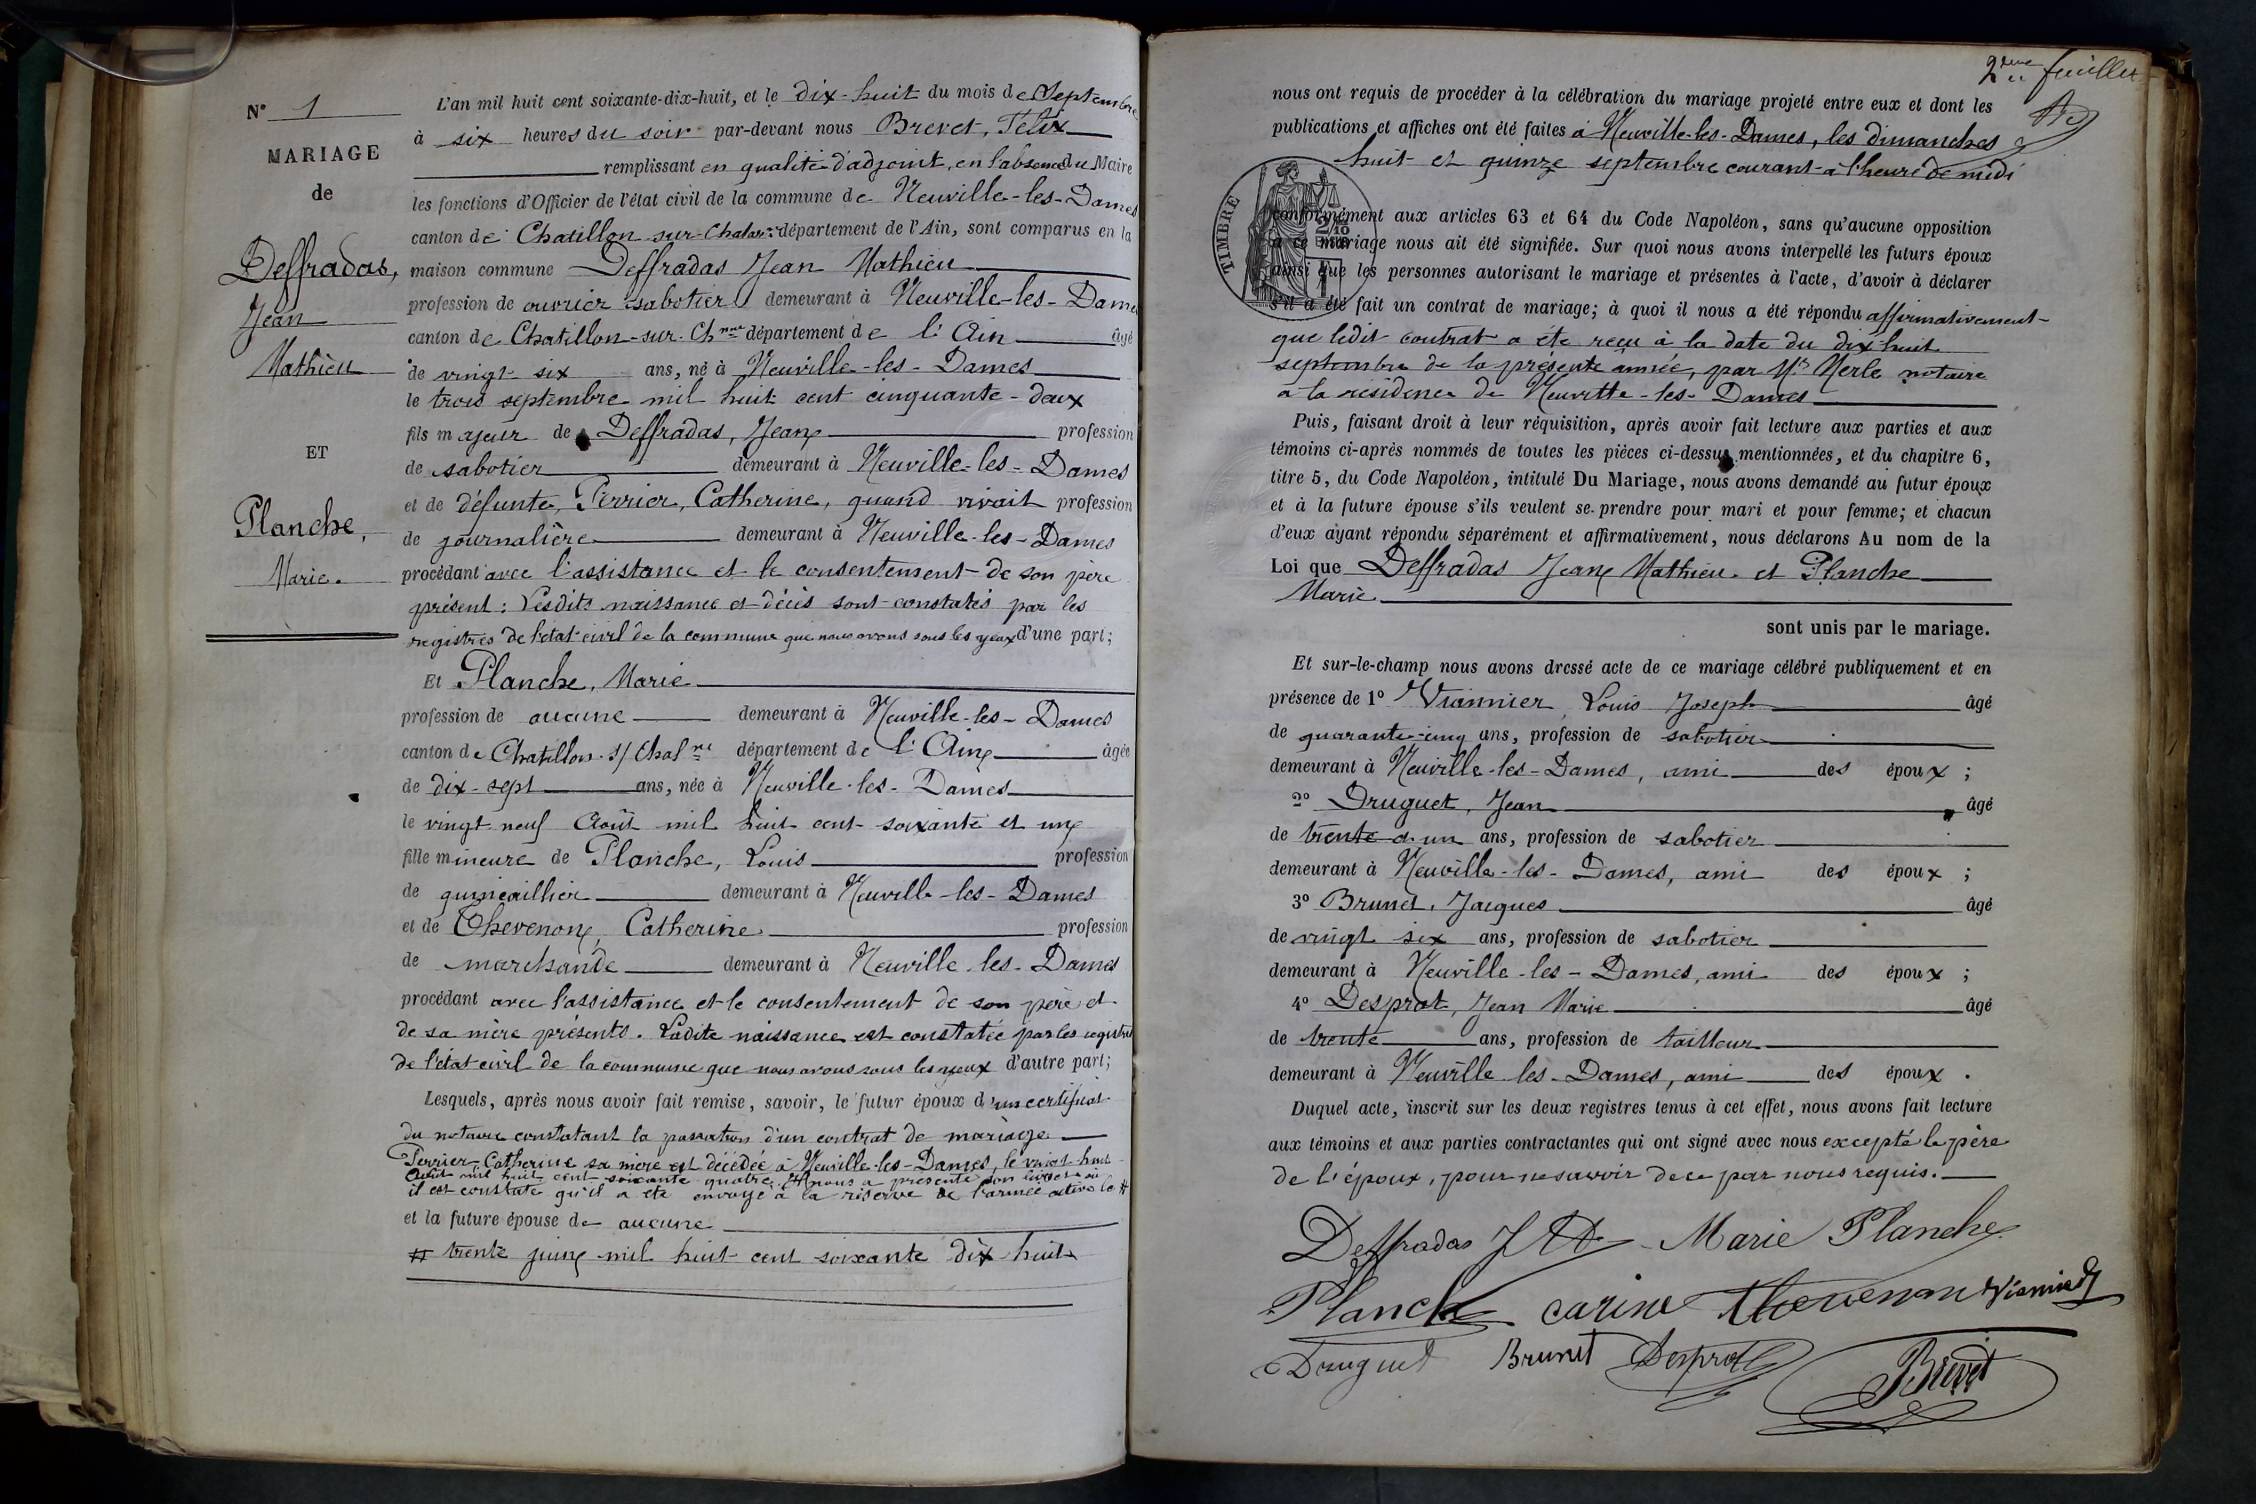 N° 1
MARIAGE
de
Deffradas,
Jean
Mathieu
ET
Planche,
Marie.
L'an mil huit cent soixante-dix-huit, et le dix-huit du mois de Septembre
à six heures du soir par-devant nous Brevet, Félix
remplissant en qualité d'adjoint, en l'absence du Maire
les fonctions d'Officier de l'état civil de la commune de Neuville-les-Dames
canton de Chatillon sur-Chalar^ne département de l'Ain, sont comparus en la
maison commune Deffradas Jean Mathieu
profession de ouvrier sabotier demeurant à Neuville-les-Dames
canton de Chatillon-sur-Ch^nne département de l'Ain âgé
de vingt-six ans, né à Neuville-les-Dames
le trois septembre mil huit cent cinquante-deux
fils majeur de Deffradas, Jean profession
de sabotier demeurant à Neuville-les-Dames
et de défunte, Perrier, Catherine, quand vivait profession
de journalière demeurant à Neuville-les-Dames
procédant avec l'assistance et le consentement de son père
présent: Lesdits naissance et décès sont constatés par les
registres de l'état civil de la commune que nous avons sous les yeux d'une part;
Et Planche, Marie
profession de aucune demeurant à Neuville-les-Dames
canton de Chatillon-s/Chal^ne département de l'Ain âgée
de dix-sept ans, née à Neuville-les-Dames
le vingt neuf Août mil huit cent soixante et un
fille mineure de Planche, Louis profession
de quincaillier demeurant à Neuville-les-Dames
et de Thevenon, Catherine profession
de marchande demeurant à Neuville-les-Dames
procédant avec l'assistance et le consentement de son père et
de sa mère présents. Ladite naissance est constatée par les registres
de l'état civil de la commune que nous avons sous les yeux d'autre part;
Lesquels, après nous avoir fait remise, savoir, le futur époux d'un certificat
du notaire constatant la passation d'un contrat de mariage
Perrier Catherine sa mère est décédée à Neuville-les-Dames, le vingt-huit
Août mil huit cent soixante quatre. Il nous a présenté son livret où
il est constaté qu'il a été envoyé à la réserve de l'armée active le #
et la future épouse de aucune
# trente juin mil huit cent soixante dix huit
2^eme feuillet
nous ont requis de procéder à la célébration du mariage projeté entre eux et dont les
publications et affiches ont été faites à Neuville-les-Dames, les dimanches
huit et quinze septembre courant à l'heure de midi
TIMBRE
conformément aux articles 63 et 64 du Code Napoléon, sans qu'aucune opposition
à ce mariage nous ait été signifiée. Sur quoi nous avons interpellé les futurs époux
ainsi que les personnes autorisant le mariage et présentes à l'acte, d'avoir à déclarer
s'il a été fait un contrat de mariage; à quoi il nous a été répondu affirmativement
que ledit contrat a été reçu à la date du dix-huit
septembre de la présente année, par M^e Merle notaire
à la résidence de Neuville-les-Dames
Puis, faisant droit à leur réquisition, après avoir fait lecture aux parties et aux
témoins ci-après nommés de toutes les pièces ci-dessus mentionnées, et du chapitre 6,
titre 5, du Code Napoléon, intitulé Du Mariage, nous avons demandé au futur époux
et à la future épouse s'ils veulent se prendre pour mari et pour femme; et chacun
d'eux ayant répondu séparément et affirmativement, nous déclarons Au nom de la
Loi que Deffradas Jean Mathieu et Planche
Marie
sont unis par le mariage.
Et sur-le-champ nous avons dressé acte de ce mariage célébré publiquement et en
présence de 1° Viannier Louis Joseph âgé
de quarante-cinq ans, profession de sabotier
demeurant à Neuville-les-Dames, ami des époux;
2° Druguet, Jean âgé
de trente et un ans, profession de sabotier
demeurant à Neuville-les-Dames, ami des époux;
3° Brunet, Jacques âgé
de vingt six ans, profession de sabotier
demeurant à Neuville-les-Dames, ami des époux;
4° Desprat, Jean Marie âgé
de trente ans, profession de tailleur
demeurant à Neuville-les-Dames, ami des époux.
Duquel acte, inscrit sur les deux registres tenus à cet effet, nous avons fait lecture
aux témoins et aux parties contractantes qui ont signé avec nous excepté le père
de l'époux, pour ne savoir de ce par nous requis.
Deffradas J M Marie Planche
Planche carine thevenon Vianniedy
Druguet Brunet Desprat Brevet